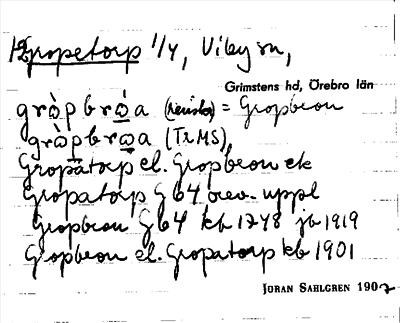 Gropetorp 1/4, Viby sn,
Grimstens hd, Örebro län
grὼpbrώa = Gropbron
grὼpbrωa (TrMS)
Gropatorp el. Gropbron ek
Gropatorp G 64 orev. uppl
Gropbron G 64 kb 1748 jb 1919
Gropbron el. Gropatorp kb 1901
JÖRAN SAHLGREN 1907